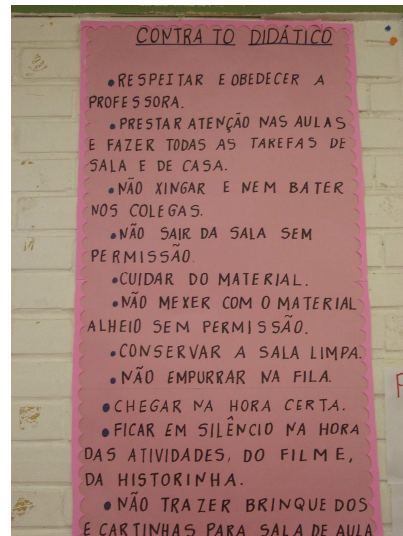 CONTRATO DIDÁTICO
•RESPEITAR E OBEDECER A
PROFESSORA.
•PRESTAR ATENÇÃO NAS AULAS
E FAZER TODAS AS TAREFAS DE
SALA E DE CASA.
•NÃO XINGAR E NEM BATER
NOS COLEGAS.
•NÃO SAIR DA SALA SEM
PERMISSÃO.
•CUIDAR DO MATERIAL.
•NÃO MEXER COM O MATERIAL
ALHEIO SEM PERMISSÃO.
•CONSERVAR A SALA LIMPA.
•NÃO EMPURRAR NA FILA.
•CHEGAR NA HORA CERTA.
•FICAR EM SILÊNCIO NA HORA
DAS ATIVIDADES, DO FILME,
DA HISTORINHA.
•NÃO TRAZER BRINQUEDOS
E CARTINHAS PARA SALA DE AULA